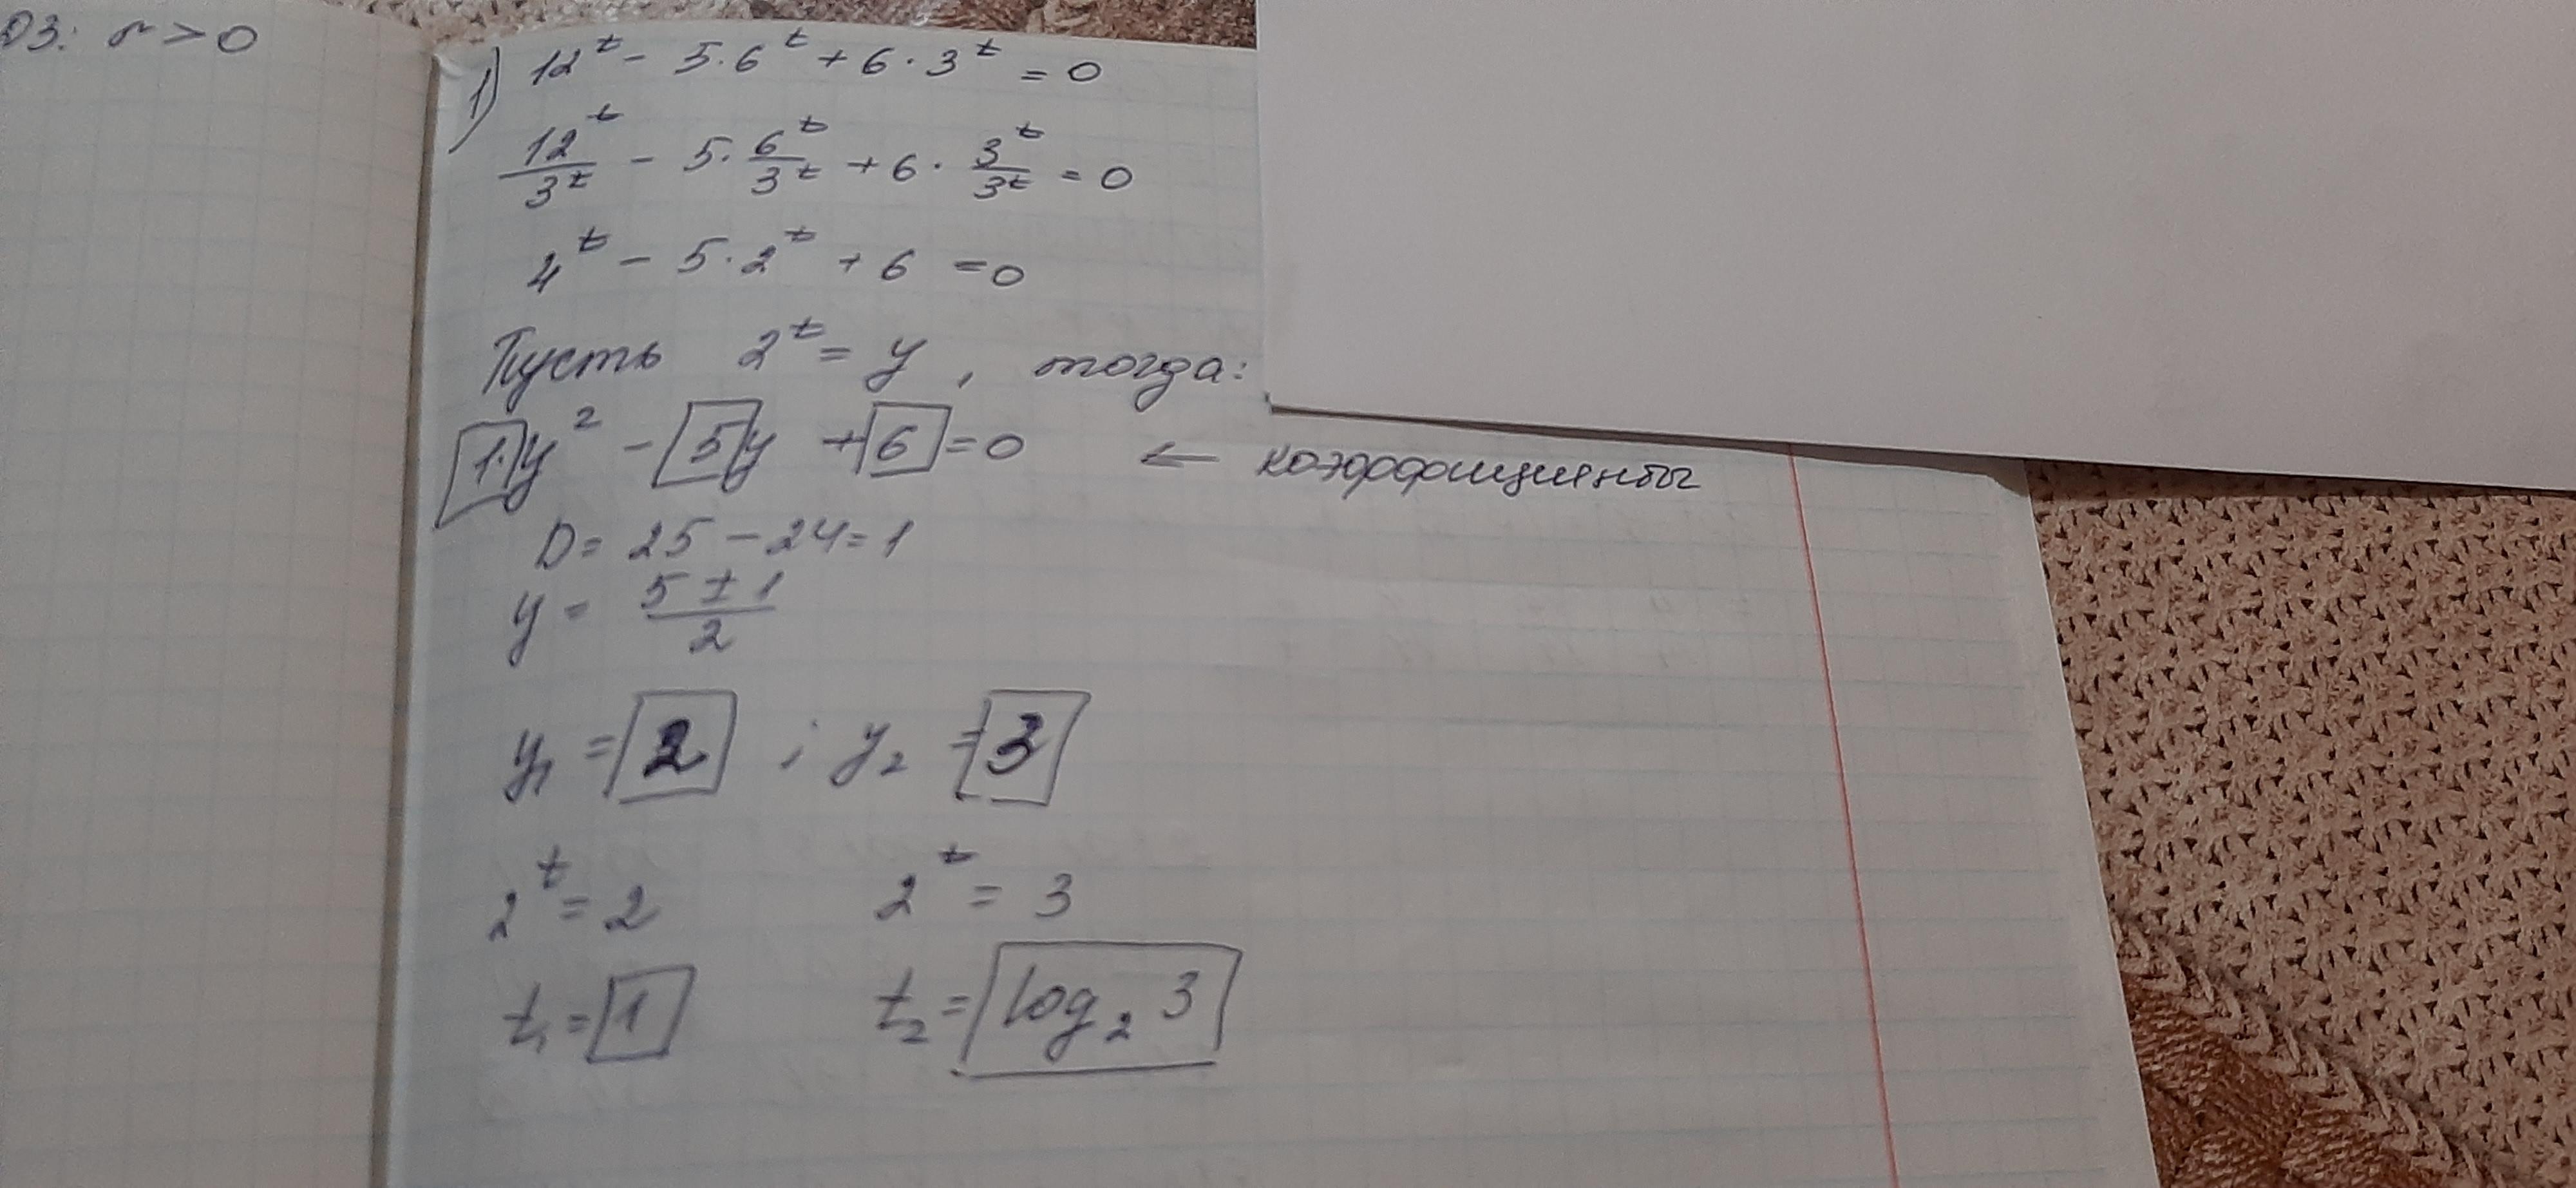 ОЗ: r > 0
1) 12^t - 5·6^t + 6·3^t = 0
12^t/3^t - 5·6^t/3^t + 6·3^t/3^t = 0
4^t - 5·2^t + 6 = 0
Пусть 2^t = y, тогда:
1·y² - 5y + 6 = 0 ← коэффициенты
D = 25 - 24 = 1
y = (5 ± 1)/2
y₁ = 2 ; y₂ = 3
2^t = 2 2^t = 3
t₁ = 1 t₂ = log₂ 3